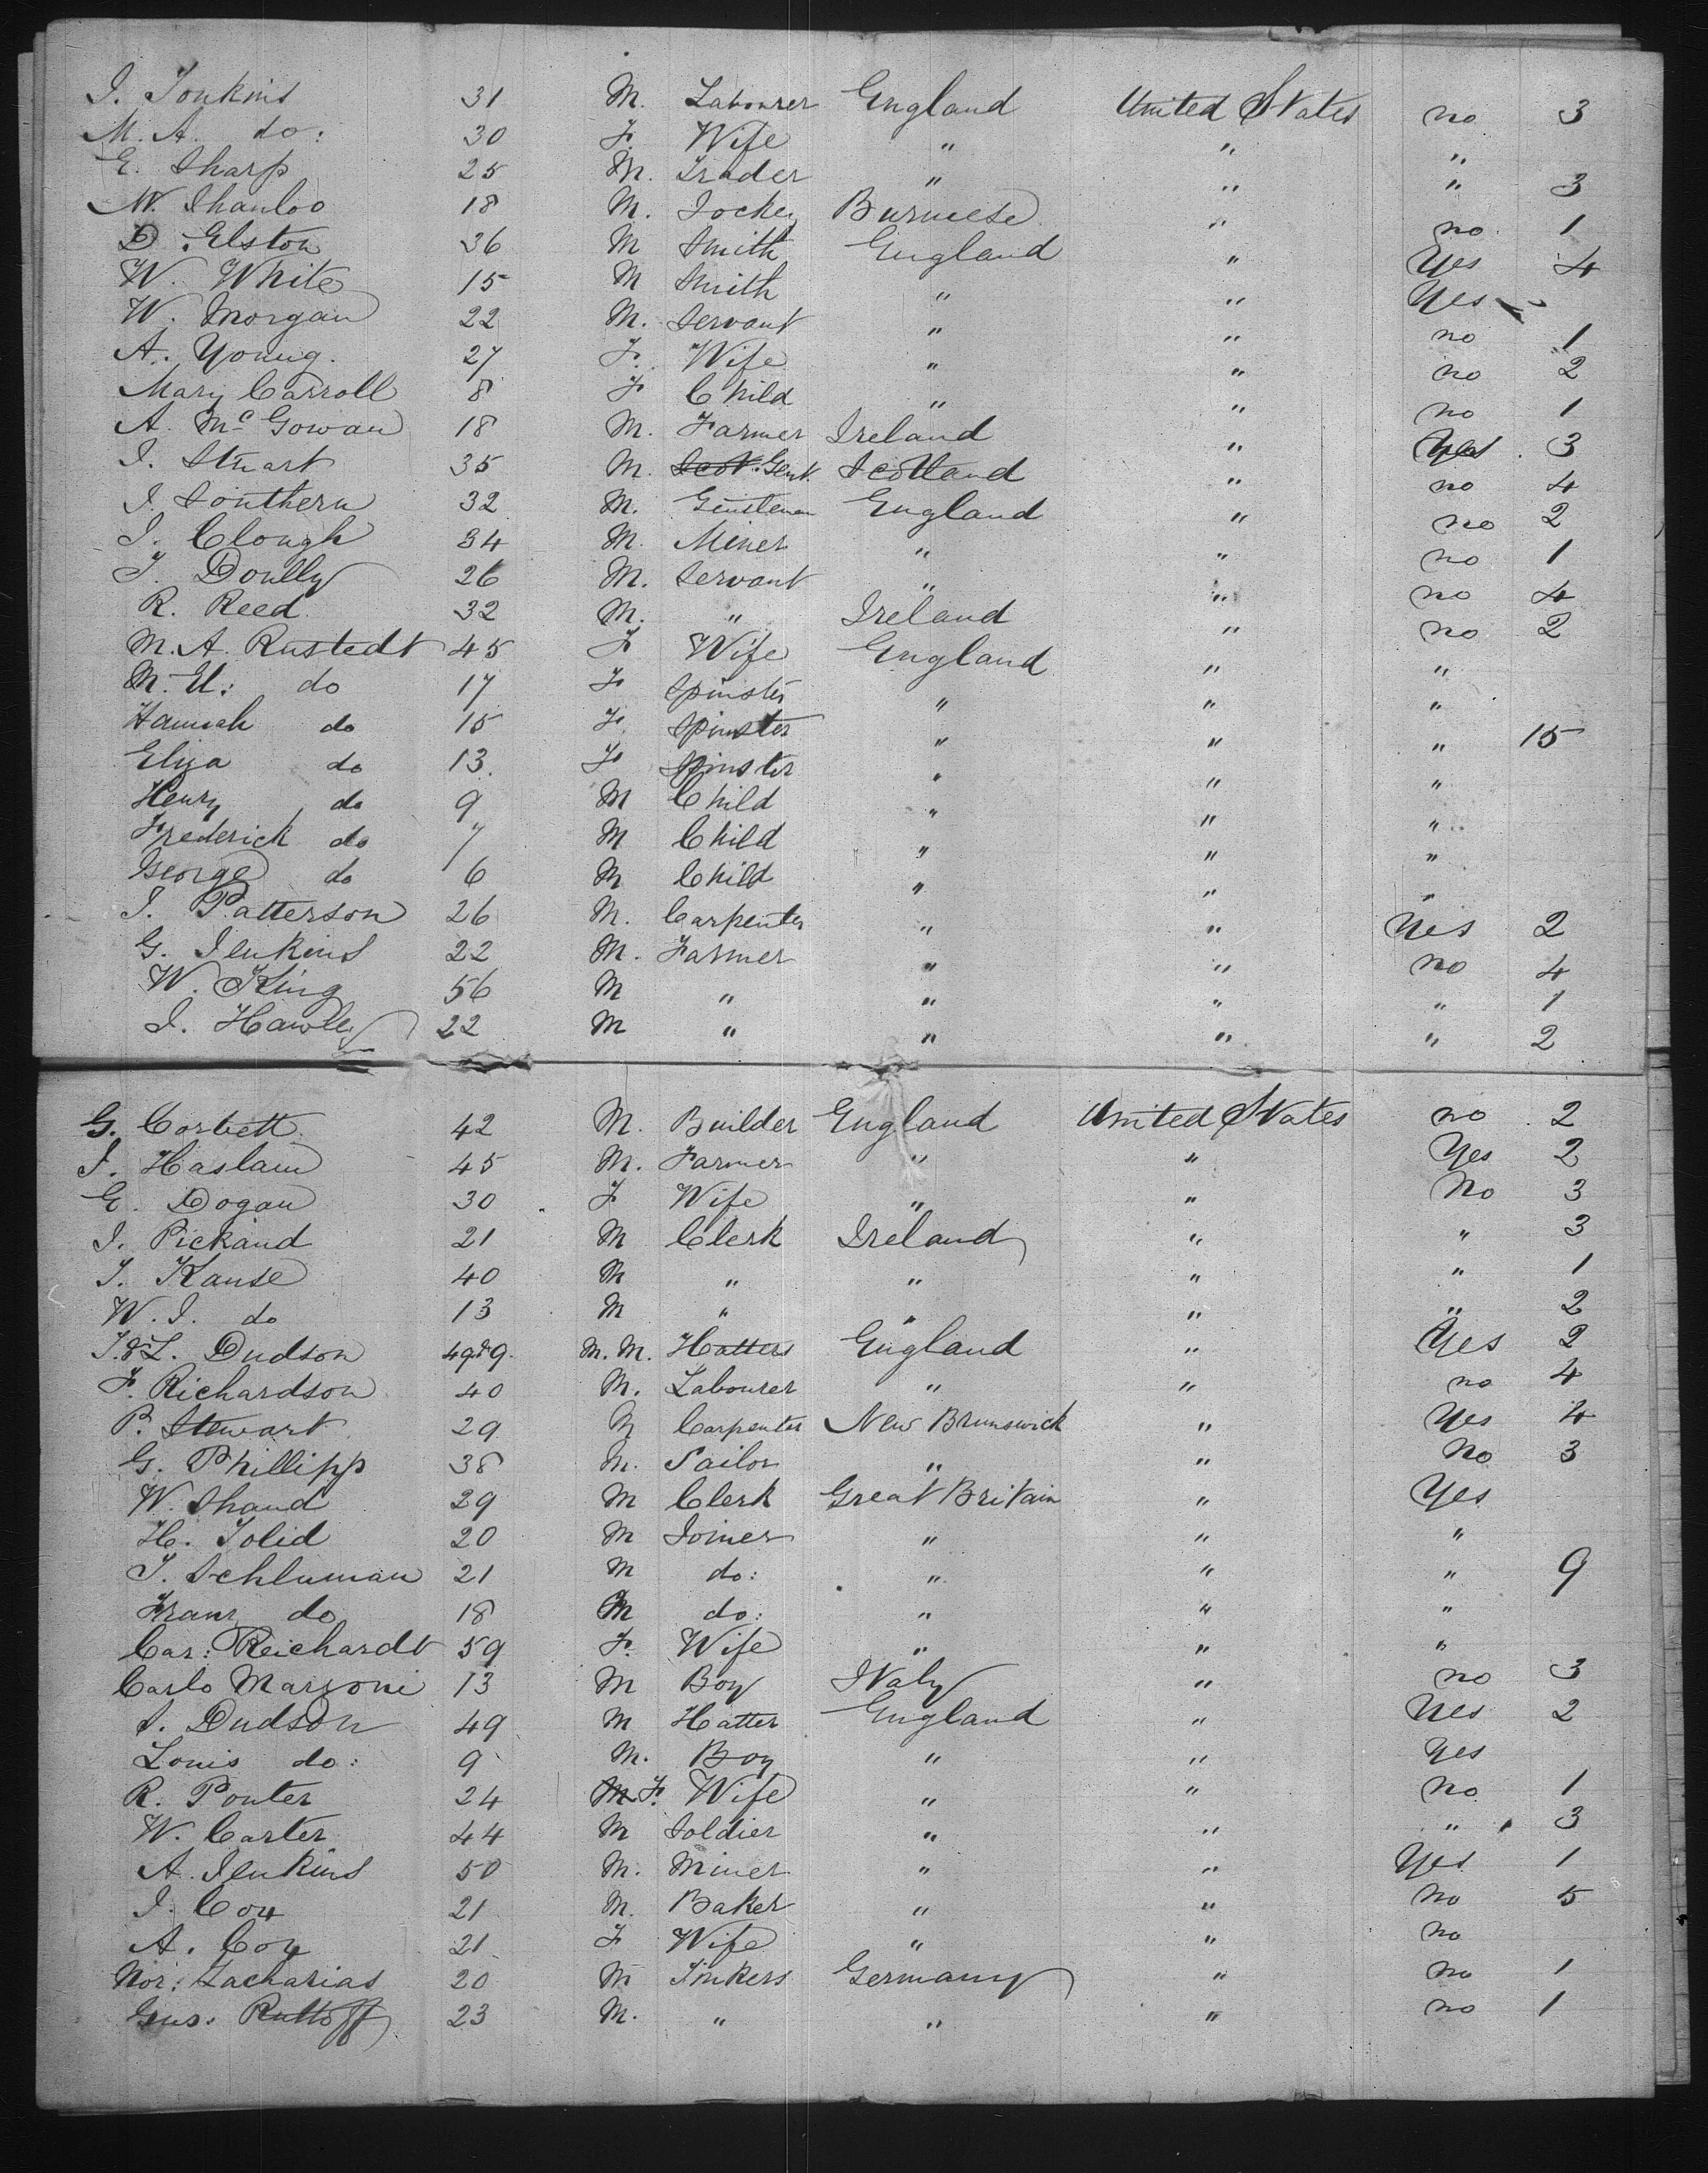 I. Jonkins 31 M. Labourer England United States no 3
M. A. do: 30 F. Wife " " "
E. Sharp 25 M. Trader " " " 3
W. Shanloo 18 M. Jockey Burmese " no 1
D. Elston 36 M Smith England " Yes 4
W. White 15 M Smith " " Yes "
W. Morgan 22 M. Servant " " no 1
A. Young. 27 F. Wife " " no 2
Mary Carroll 8 F Child " " no 1
A. McGowan 18 M. Farmer Ireland " Yes 3
I. Stuart 35 M. Scot. Gent. Scotland " no 4
I. Southern 32 M. Gentleman England " no 2
I. Clough 34 M. Miner " " no 1
T. Doully 26 M. Servant " " no 4
R. Reed 32 M. " Ireland " no 2
M. A. Rustedt 45 F Wife England " "
M. E. do 17 F Spinster " " "
Hannah do 15 F. Spinster " " " 15
Eliza do 13 F Spinster " " "
Henry do 9 M Child " " "
Frederick do 7 M Child " " "
George do 6 M Child " " "
I. Patterson 26 M. Carpenter " " Yes 2
G. Jenkins 22 M. Farmer " " no 4
W. King 56 M " " " " 1
I. Hawley 22 M " " " " 2
G. Corbett 42 M. Builder England United States no 2
I. Haslam 45 M. Farmer " " Yes 2
E. Dogan 30 F Wife " " No 3
I. Pickand 21 M Clerk Ireland " " 3
T. Kanse 40 M " " " " 1
W. I. do 13 M " " " " 2
I. & L. Dudson 49 & 9. M. M. Hatters England " Yes 2
F. Richardson 40 M. Labourer " " no 4
P. Stewart 29 M Carpenter New Brunswick " Yes 4
G. Phillipp 38 M. Sailor " " No 3
W. Shand 29 M Clerk Great Britain " Yes
H. Tolid 20 M Joiner " " "
T. Schluman 21 M do: " " " 9
Franz do 18 M do: " " "
Car: Reichardt 59 F. Wife " " "
Carlo Marzoni 13 M Boy Italy " no 3
S. Dudson 49 M Hatter England " Yes 2
Louis do: 9 M. Boy " " Yes
R. Ponter 24 F. Wife " " no 1
W. Carter 44 M Soldier " " " 3
A. Jenkins 50 M. Miner " " Yes 1
I. Cox 21 M. Baker " " no 5
A. Cox 21 F Wife " " no
Nor: Zacharias 20 M Tinkers Germany " no 1
Gus: Ruttoff 23 M. " " " no 1